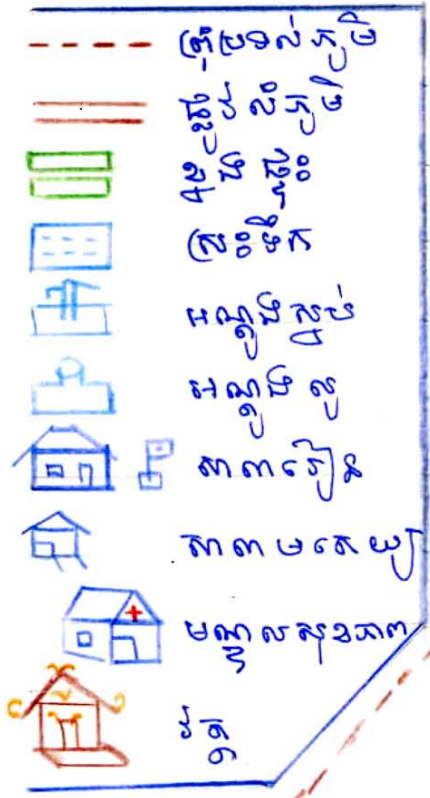 ព្រំប្រទល់ភូមិ
ផ្លូវលំភូមិ
ខ្នងផ្ទះ
ស្រះទឹក
អណ្តូងស្នប់
អណ្តូងលូ
សាលារៀន
សាលាមតេយ្យ
មណ្ឌលសុខភាព
វត្ត